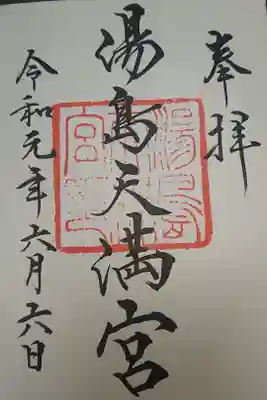 奉拝
湯島天満宮
令和元年六月六日